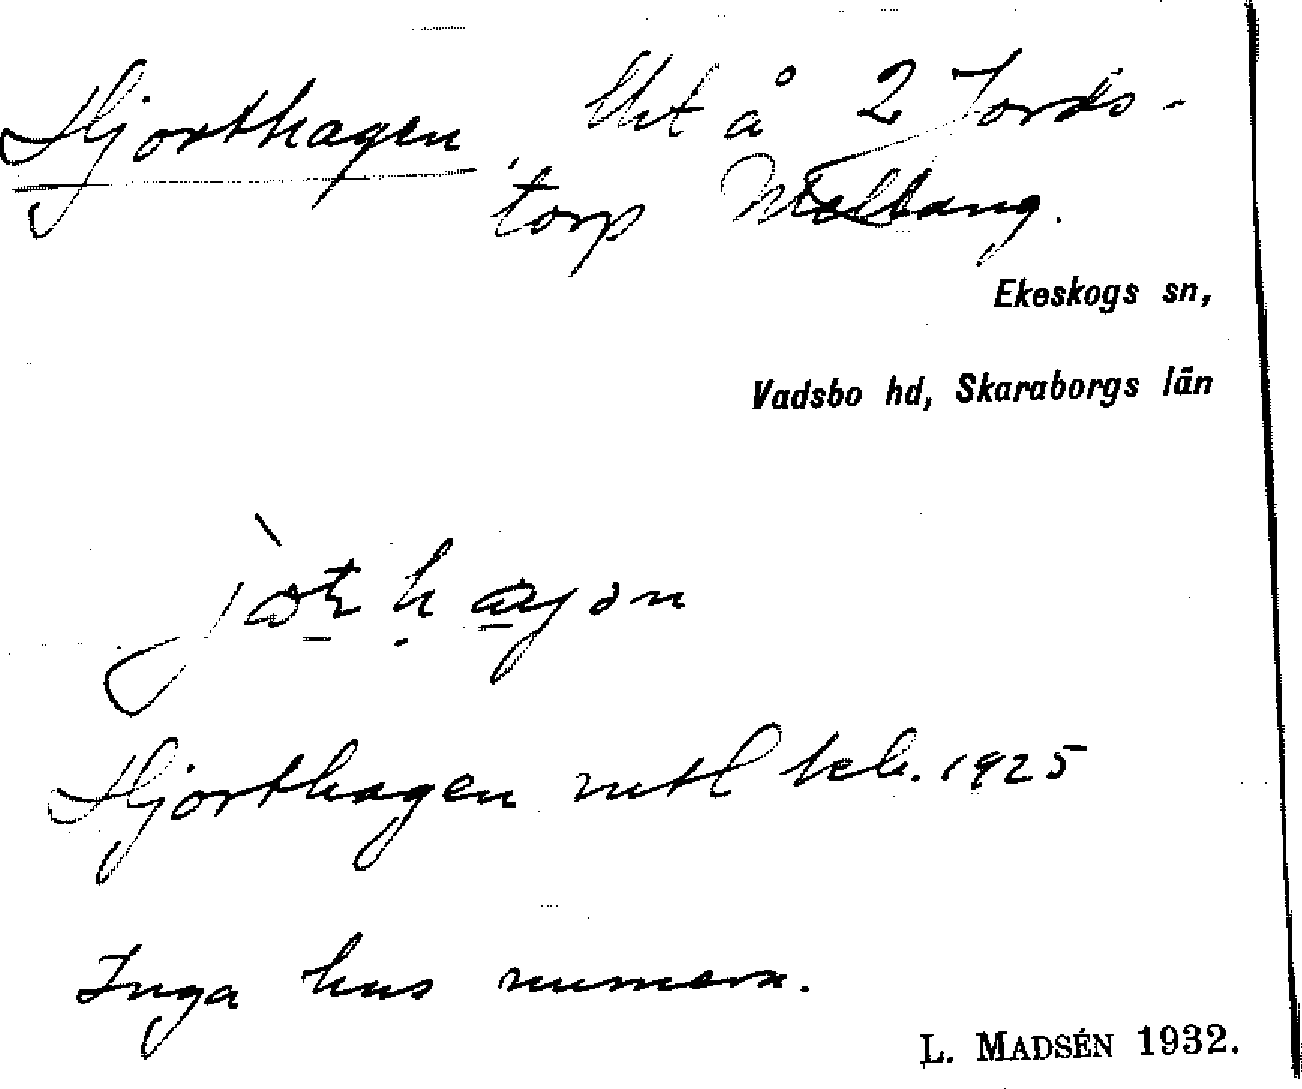 Hjorthagen, lht å 2 Jords-
torp Mellang.
Ekeskogs sn,
Vadsbo hd, Skaraborgs län
Hjorthagen mtl beh. 1925
Inga hus numera.
L. MADSÉN 1932.